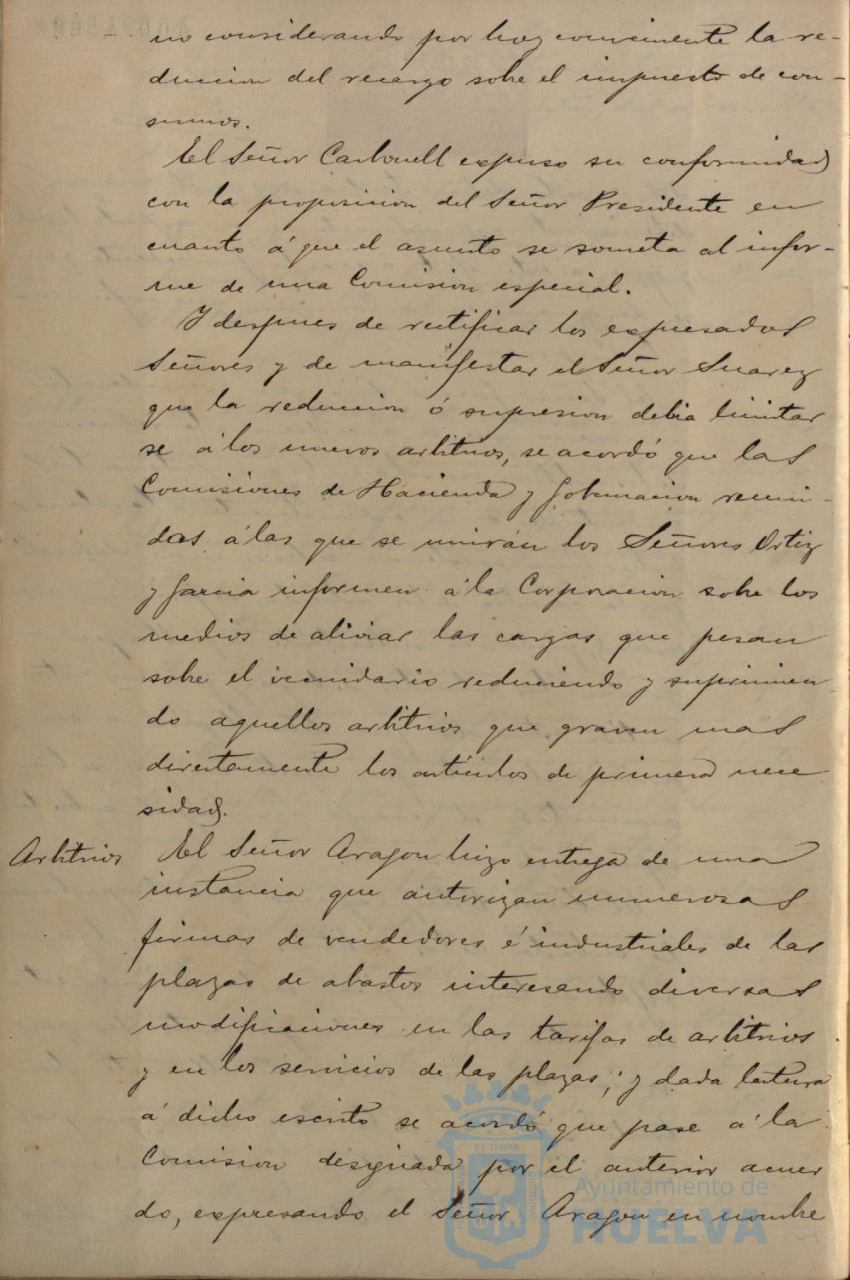 no considerando por hoy conveniente la re-
duccion del recargo sobre el impuesto de con-
sumos.
El Señor Carbonell expuso su conformidad
con la proposicion del Señor Presidente en
cuanto á que el asunto se someta al infor-
me de una Comision especial.
Y despues de rectificar los expresados
Señores y de manifestar el Señor Suarez
que la reduccion ó supresion debia limitar
se á los nuevos arbitrios, se acordó que las
Comisiones de Hacienda y Gobernacion reuni-
das á las que se unirán los Señores Ortiz
y Garcia informen á la Corporacion sobre los
medios de aliviar las cargas que pesan
sobre el vecindario reduciendo y suprimien
do aquellos arbitrios que graven mas
directamente los artículos de primera nece
sidad.
Arbitrios El Señor Aragon hizo entrega de una
instancia que autorizan numerosas
firmas de vendedores é industriales de las
plazas de abastos interesando diversas
modificaciones en las tarifas de arbitrios
y en los servicios de las plazas; y dada lectura
á dicho escrito se acordó que pase á la
Comision designada por el anterior acuer
do, expresando el Señor Aragon en nombre
Ayuntamiento de
HUELVA